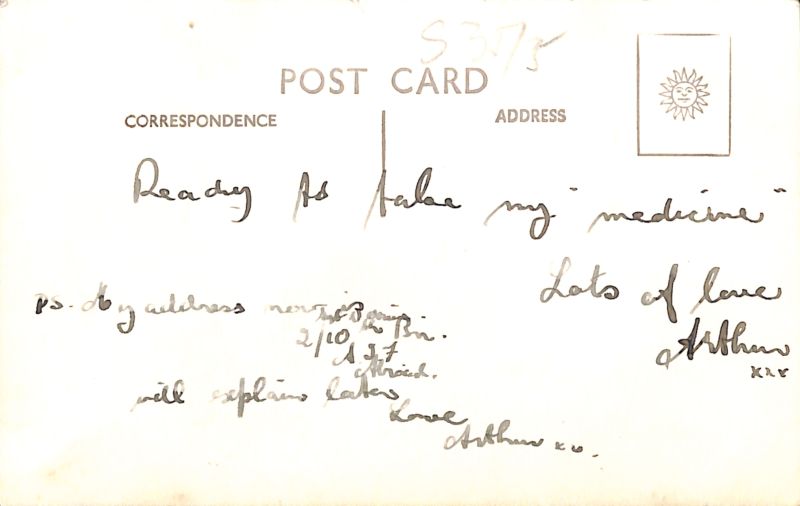 S375
POST CARD
CORRESPONDENCE
ADDRESS
Ready to take my "medicine"
Lots of love
Arthur
xxx
PS. My address now is
2/10 Bn.
A I F
Abroad.
will explain later
Love
Arthur xx.